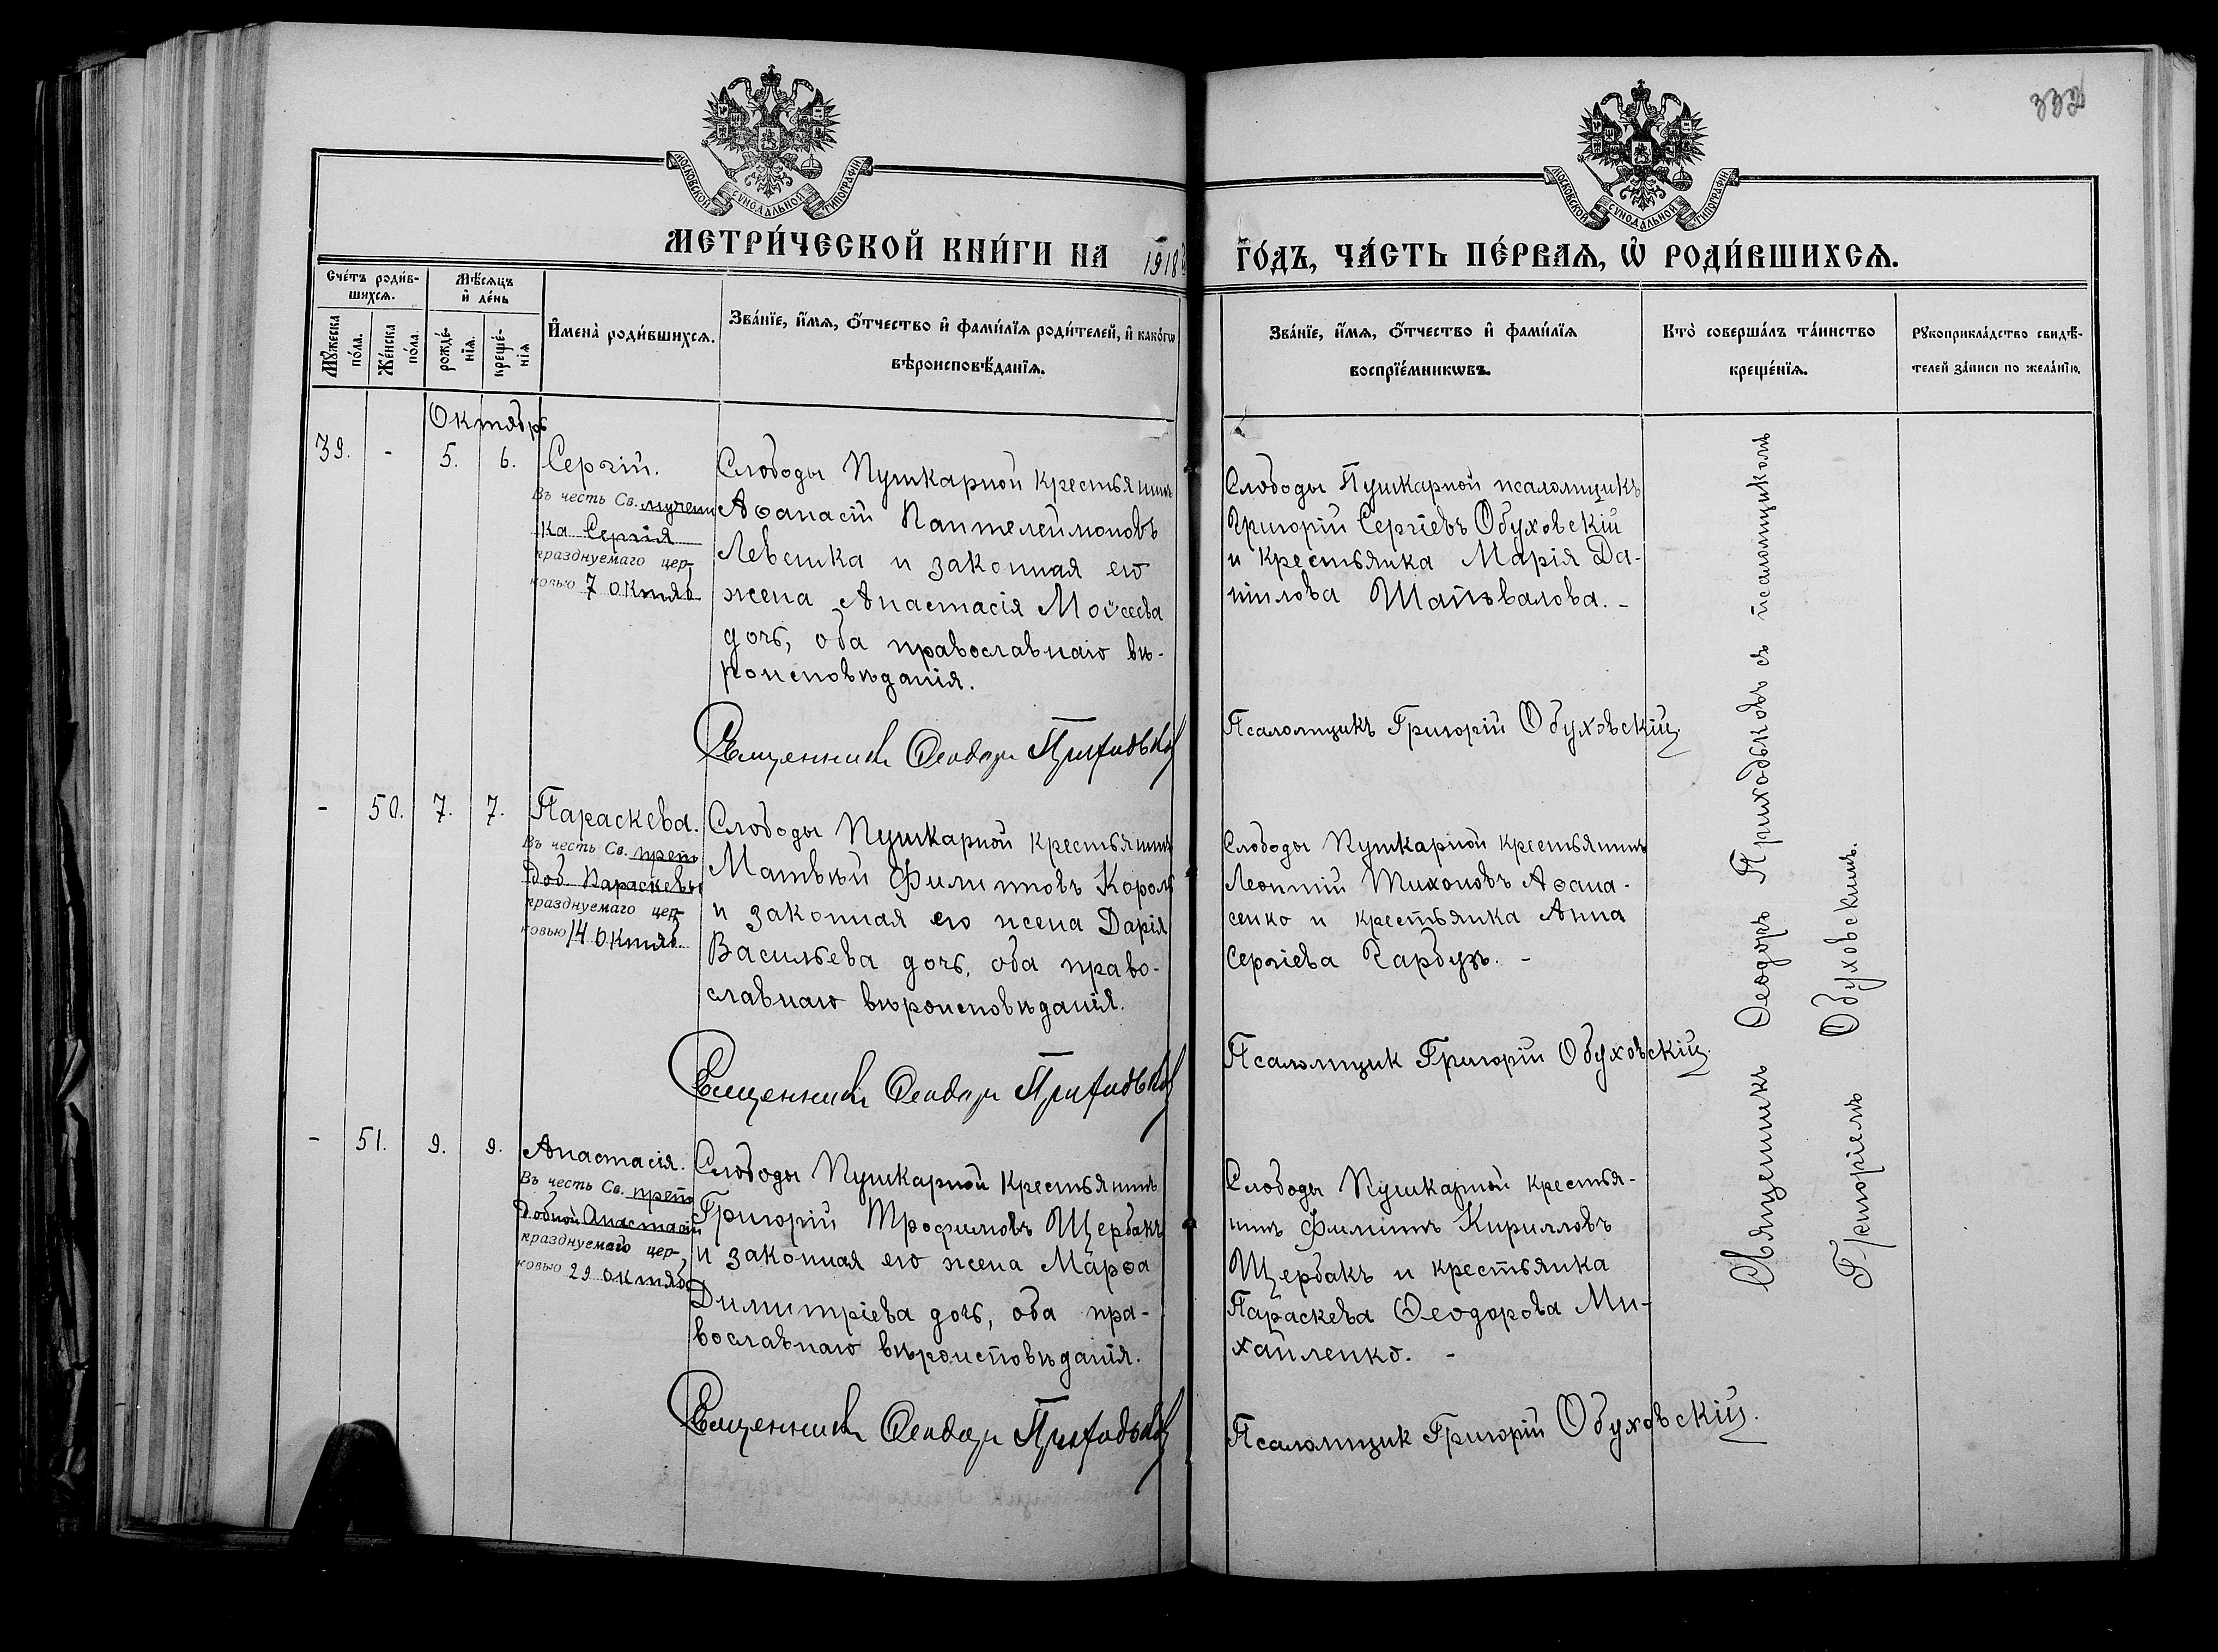 332
МОСКОВСКОЙ СУНОДАЛЬНОЙ ТИПОГРАФІИ
МОСКОВСКОЙ СУНОДАЛЬНОЙ ТИПОГРАФІИ
МЕТРИ́ЧЕСКОЙ КНИ́ГИ НА 1918 ГО́ДЪ, ЧА́СТЬ ПЕ́РВАѦ, Ѡ РОДИ́ВШИХСѦ.
Сче́тъ роди́в-
шихсѧ.
Мѣ́сѧцъ
и҆ де́нь
Мꙋ́жеска
по́ла.
Же́нска
по́ла.
рожде́-
нїѧ.
креще́-
нїѧ
И҆мена̀ роди́вшихсѧ.
Зва́нїе, и҆́мѧ, ѻ҆́тчество и҆ фами́лїѧ роди́телей, и҆ како́гѡ
вѣроисповѣ́данїѧ.
Зва́нїе, и҆́мѧ, ѻ҆́тчество и҆ фами́лїѧ
воспрїе́мникѡвъ.
Кто̀ соверша́лъ та́инство
креще́нїѧ.
Рꙋкоприкла́дство свидѣ́-
телей за́писи по жела́нїю.
Октябрь
39. - 5. 6. Сергій.
Въ честь Св. мучени
ка Сергія
празднуемаго цер-
ковью 7 октяб.
Слободы Пушкарной крестьянинъ
Аѳанасій Пантелеймоновъ
Левешка и законная его
жена Анастасія Моѵсеева
дочь, оба православнаго вѣ-
роисповѣданія.
Священникъ Ѳеодоръ Приходьков
Слободы Пушкарной псаломщикъ
Григорій Сергіевъ Обуховскій
и крестьянка Марія Да-
ніилова Шаповалова. -
Псаломщикъ Григорій Обуховскій.
- 50. 7. 7. Параскева.
Въ честь Св. препо
доб. Параскевы
празднуемаго цер-
ковью 14 октяб.
Слободы Пушкарной крестьянинъ
Матвѣй Филипповъ Король
и законная его жена Дарія
Васильева дочь, оба право-
славнаго вѣроисповѣданія.
Священникъ Ѳеодоръ Приходьков
Слободы Пушкарной крестьянинъ
Леонтій Тихоновъ Аѳана-
сенко и крестьянка Анна
Сергіева Гарбузъ. -
Псаломщик Григорій Обуховскій.
- 51. 9. 9. Анастасія.
Въ честь Св. препо
добной Анастасіи
празднуемаго цер-
ковью 29 октяб.
Слободы Пушкарной крестьянинъ
Григорій Трофимовъ Щербакъ
и законная его жена Марѳа
Димитріева дочь, оба пра-
вославнаго вѣроисповѣданія.
Священникъ Ѳеодоръ Приходьков
Слободы Пушкарной крестья-
нинъ Филиппъ Кирилловъ
Щербакъ и крестьянка
Параскева Ѳеодорова Ми-
хайленко. -
Псаломщик Григорій Обуховскій.
Священникъ Ѳеодоръ Приходьковъ съ псаломщикомъ
Григоріемъ Обуховскимъ.